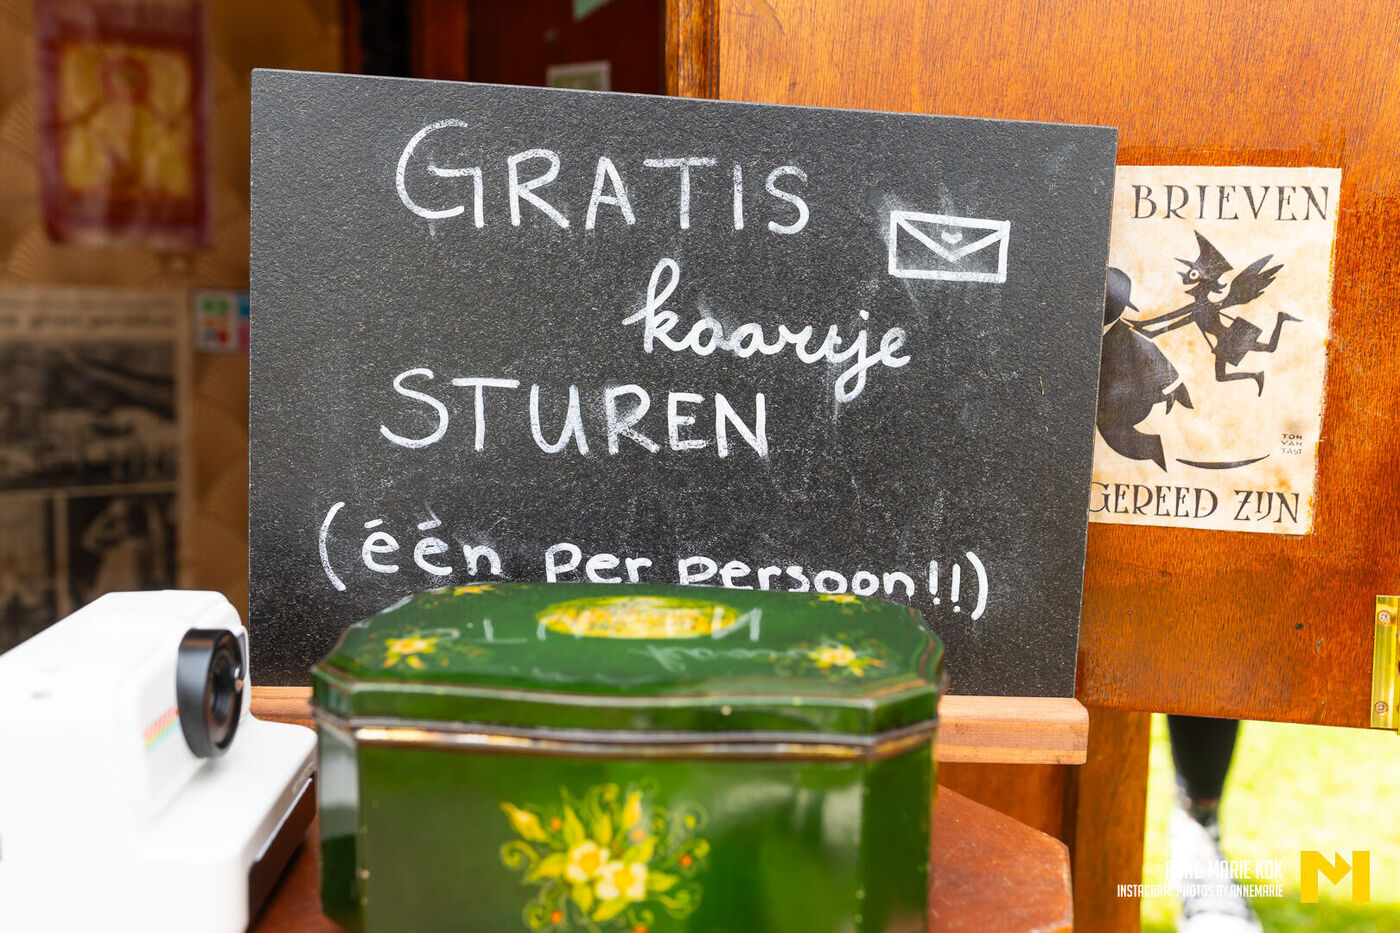 GRATIS
kaartje
STUREN
(één per persoon!!)
BRIEVEN
TON
VAN
TAST
GEREED ZIJN
ANNE-MARIE KOK
INSTAGRAM: PHOTOS.BY.ANNEMARIE